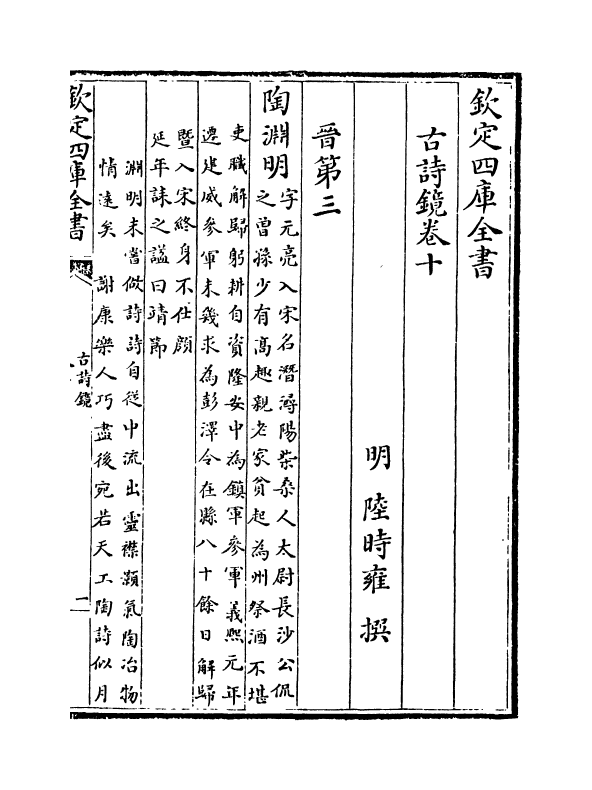 欽定四庫全書
古詩鏡卷十
明 陸時雍 撰
晉第三
陶淵明
字元亮入宋名潛潯陽柴桑人太尉長沙公侃
之曾孫少有高趣親老家貧起為州祭酒不堪
吏職解歸躬耕自資隆安中為鎮軍參軍義熙元年
遷建威參軍未幾求為彭澤令在縣八十餘日解歸
暨入宋終身不仕顔
延年誄之謚曰靖節
淵明未嘗做詩詩自從中流出靈襟顥氣陶冶物
情遠矣 謝康樂人巧盡後宛若天工陶詩似月
欽定四庫全書
古詩鏡
二